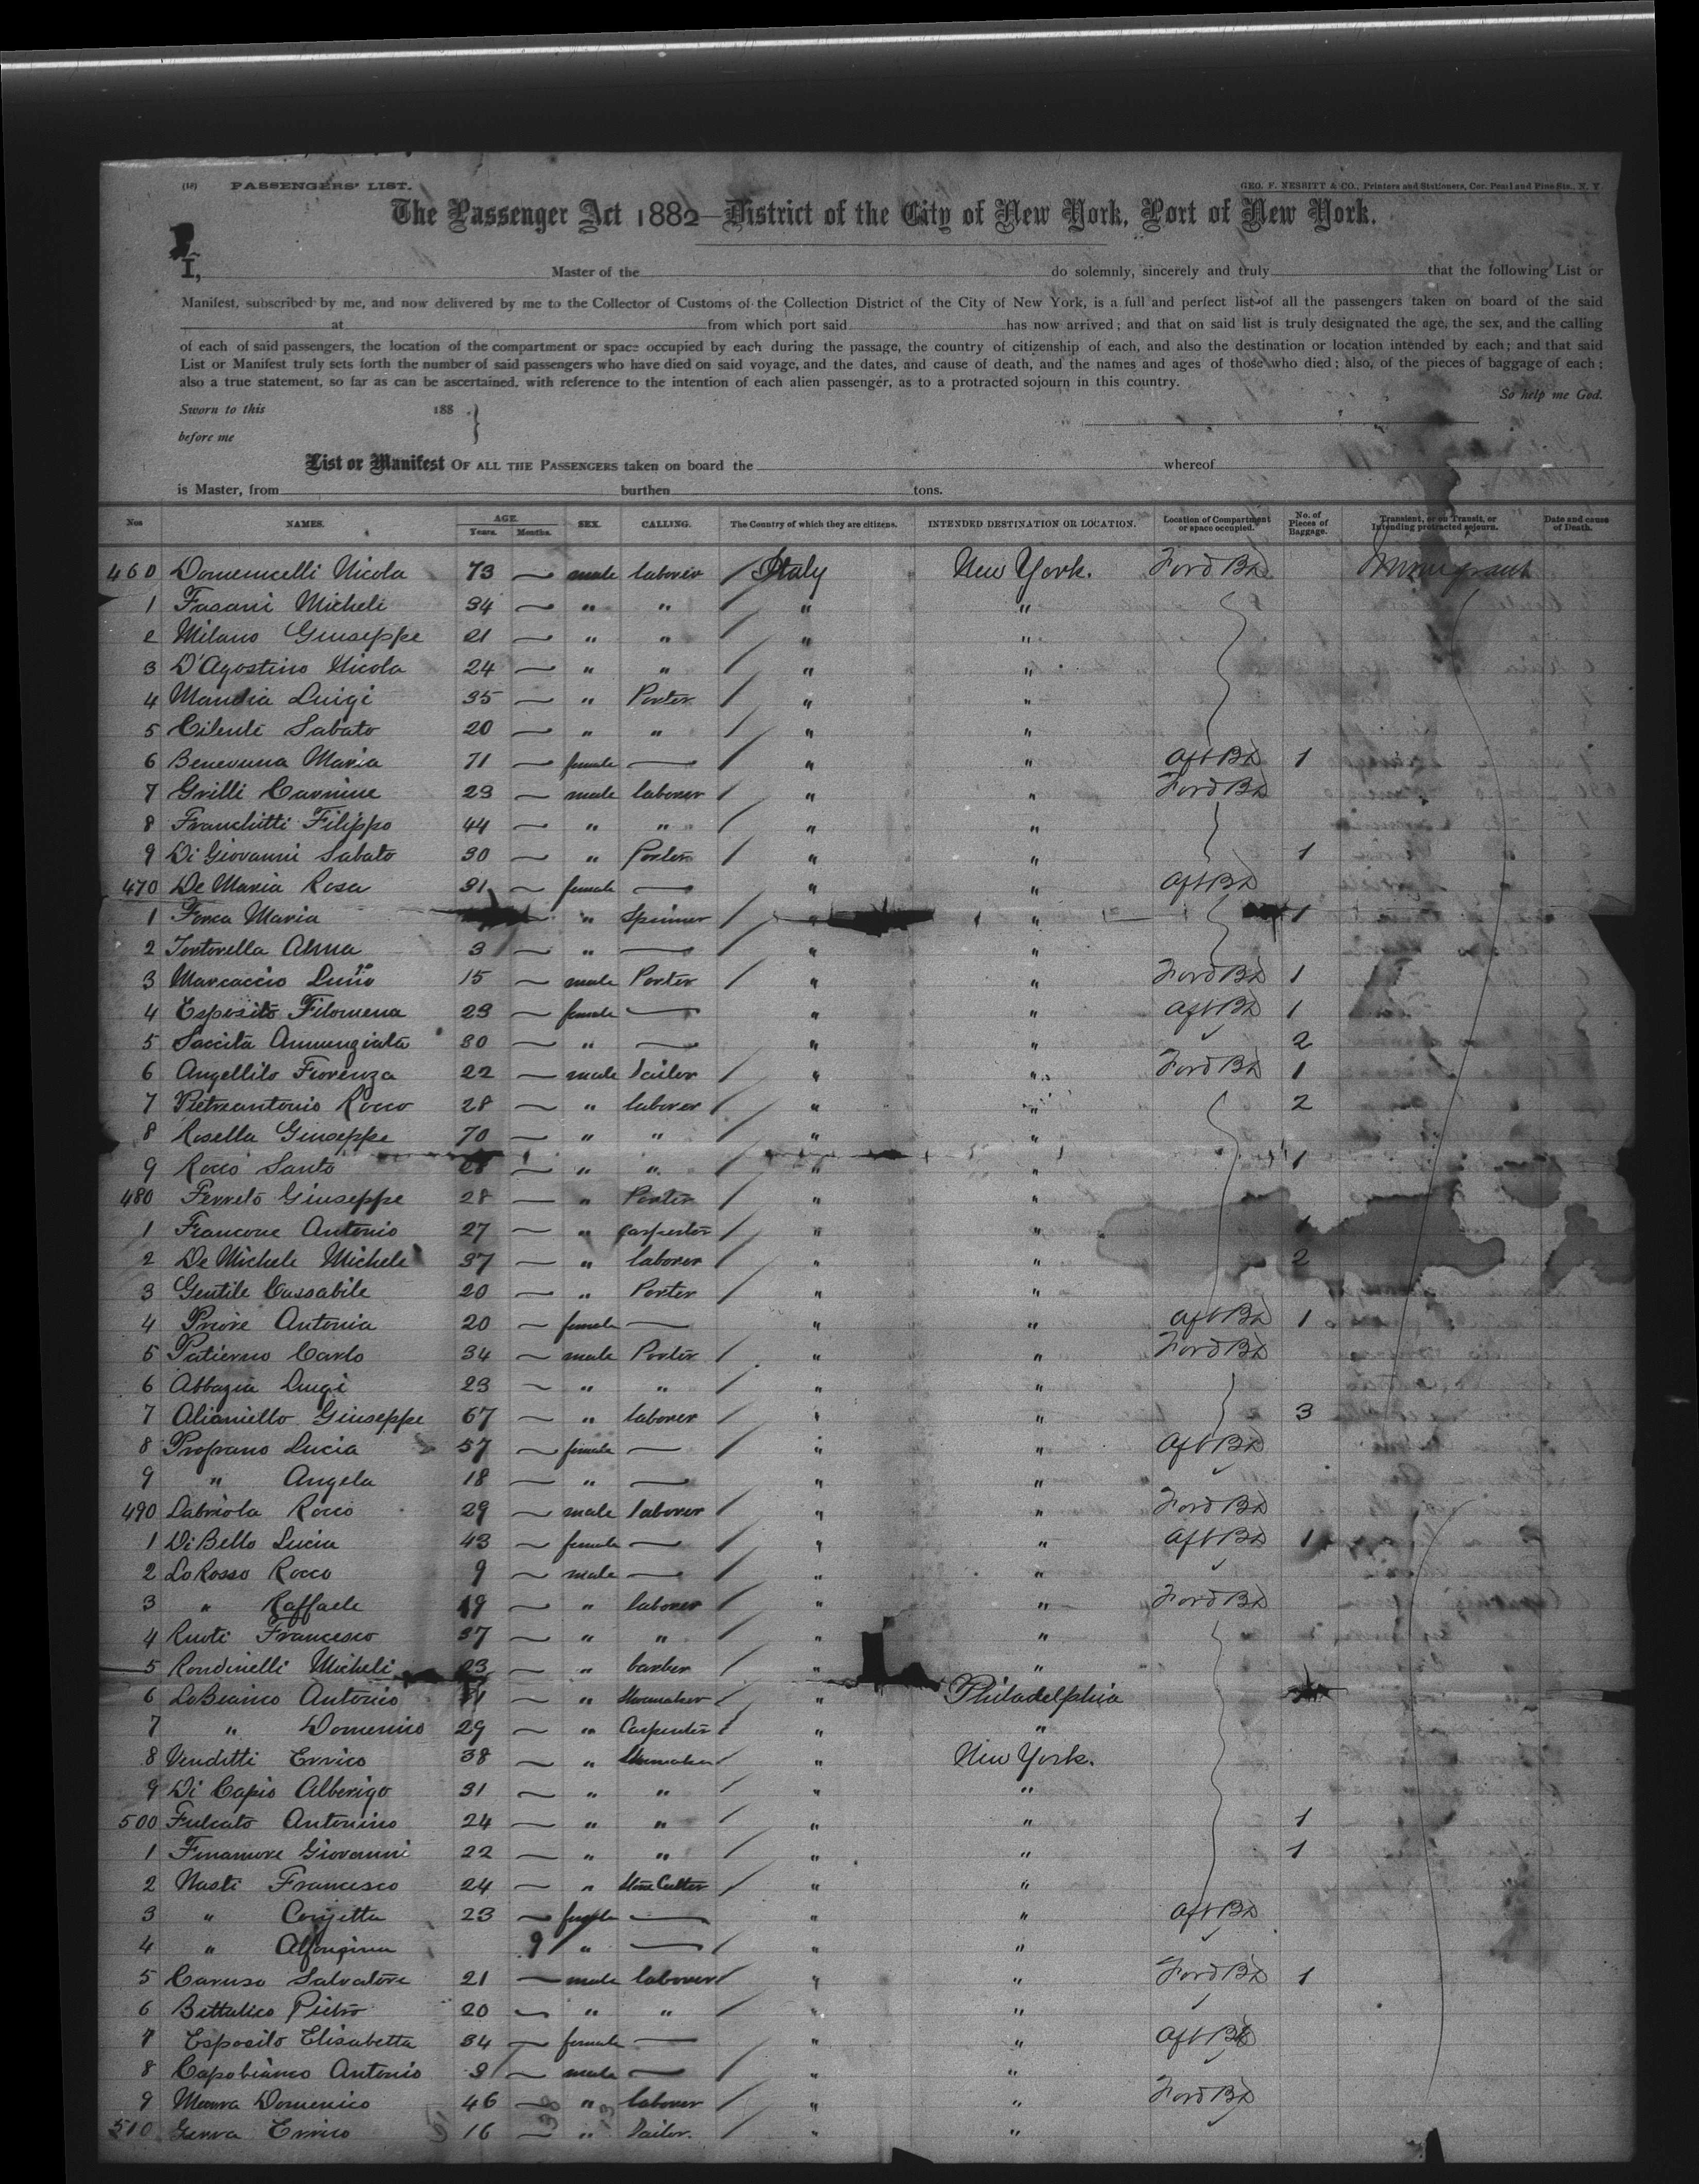 (12) PASSENGERS' LIST. GEO. F. NESBITT & CO., Printers and Stationers, Cor. Pearl and Pine Sts., N. Y.
The Passenger Act 1882—District of the City of New York, Port of New York.
I, Master of the do solemnly, sincerely and truly that the following List or
Manifest, subscribed by me, and now delivered by me to the Collector of Customs of the Collection District of the City of New York, is a full and perfect list of all the passengers taken on board of the said
at from which port said has now arrived; and that on said list is truly designated the age, the sex, and the calling
of each of said passengers, the location of the compartment or space occupied by each during the passage, the country of citizenship of each, and also the destination or location intended by each; and that said
List or Manifest truly sets forth the number of said passengers who have died on said voyage, and the dates, and cause of death, and the names and ages of those who died; also, of the pieces of baggage of each;
also a true statement, so far as can be ascertained, with reference to the intention of each alien passenger, as to a protracted sojourn in this country.
So help me God.
Sworn to this 188 .}
before me
List or Manifest OF ALL THE PASSENGERS taken on board the whereof
is Master, from burthen tons.
Nos NAMES. AGE. Years. Months. SEX. CALLING. The Country of which they are citizens. INTENDED DESTINATION OR LOCATION. Location of Compartment or space occupied. No. of Pieces of Baggage. Transient, or on Transit, or Intending protracted sojourn. Date and cause of Death.
460 Domenicelli Nicola 73 — male laborer / Italy New York. Ford BD Immigrant
1 Fasani Micheli 34 — " " / " "
2 Milano Giuseppe 21 — " " / " "
3 D'Agostino Nicola 24 — " " / " "
4 Mandia Luigi 35 — " Porter / " "
5 Cilenti Sabato 20 — " " / " "
6 Benevuna Maria 71 — female — / " " Aft BD 1
7 Grilli Carmine 23 — male laborer / " " Ford BD
8 Franchitti Filippo 44 — " " / " "
9 Di Giovanni Sabato 30 — " Porter / " " 1
470 De Maria Rosa 31 — female — " " Aft BD
1 Fonca Maria " Spinner / " " 1
2 Tortorella Anna 3 — " — / " "
3 Marcaccio 15 — male Porter / " " Ford BD 1
4 Esposito Filomena 23 — female — " " Aft BD 1
5 Saccita Annunziata 30 — " — " " 2
6 Angellilo Fiorenza 22 — male Tailor / " " Ford BD 1
7 Pietreantonio Rocco 28 — " laborer / " " 2
8 Rosella Giuseppe 70 — " " / " "
9 Rocco Santo — " " / " " 1
480 Ferreto Giuseppe 28 — " Porter / " "
1 Francone Antonio 27 — " Carpenter / " "
2 De Michele Michele 37 — " laborer / " " 2
3 Gentile Cassabile 20 — " Porter / " "
4 Priore Antonia 20 — female — " " Aft BD 1
5 Patierno Carlo 34 — male Porter / " " Ford BD
6 Abbazia Luigi 23 — " " / " "
7 Alianiello Giuseppe 67 — " laborer / " " 3
8 Profrano Lucia 57 — female — / " " Aft BD
9 " Angela 18 — " — " "
490 Labriola Rocco 29 — male laborer / " " Ford BD
1 Di Bello Lucia 43 — female — / " " Aft BD 1
2 Lo Rosso Rocco 9 — male — / " "
3 " Raffaele 19 — " laborer / " " Ford BD
4 Ruoti Francesco 37 — " " / " "
5 Rondinelli Micheli 23 — " barber / " "
6 Lo Bianco Antonio — " Shoemaker / " Philadelphia
7 " Domenico 29 — " Carpenter / " "
8 Venditti Errico 38 — " Shoemaker / " New York.
9 Di Capio Alberigo 31 — " " / " "
500 Fulcato Antonino 24 — " " / " " 1
1 Finamore Giovanni 22 — " " / " " 1
2 Nasti Francesco 24 — " Stone Cutter / " "
3 " Conjetta 23 — female — " " Aft BD
4 " Alfonsina 9 " — / " "
5 Caruso Salvatore 21 — male laborer / " " Ford BD 1
6 Bettalico Pietro 20 — " " / " "
7 Esposito Elisabetta 34 — female — " " Aft BD
8 Capobianco Antonio 3 — male — / " "
9 Domenico 46 — " laborer / " " Ford BD
510 Errico 16 — " Tailor. / " "